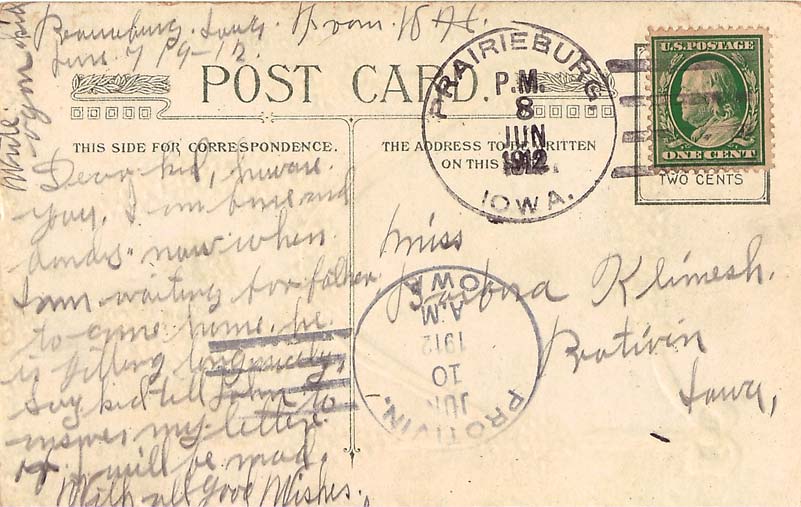 Iowa. From
June 7 19-12.
POST CARD.
THIS SIDE FOR CORRESPONDENCE.
THE ADDRESS TO BE WRITTEN
ON THIS
Dear kid, how are
you, I am
now when
I am waiting for father
to come home. he
is getting along nicely,
say kid tell John to
answer my letter
or I will be mad.
With all Good Wishes.
Write
soon kid
PRAIRIEBURG.
P.M.
8
JUN
1912
IOWA.
U.S. POSTAGE
ONE CENT
TWO CENTS
Miss
Barbora Klimesh.
Protivin
Iowa,
PROTIVIN.
JUN
10
1912
A.M.
IOWA